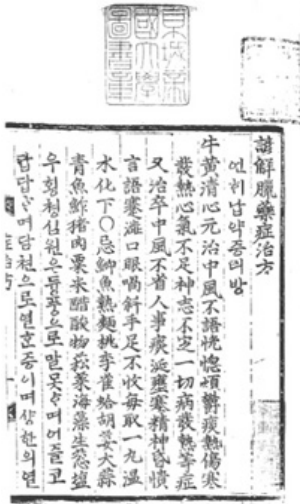 京城帝
國大學
圖書章
諺解臘藥症治方
언해납약증티방
牛黃清心元治中風不語恍惚煩鬱痰熱傷寒
發熱心氣不足神志不定一切病發熱等症
又治卒中風不省人事痰涎壅塞精神昏憒
言語蹇澁口眼喎斜手足不收每取一丸溫
水化下〇忌鯽魚熱麵桃李雀蛤胡荽大蒜
青魚鮓猪肉粟米醋酸物菘菜海藻生葱
우황청심원은듕풍으로말못ᄒᆞ며어즐ᄒᆞ고
답답ᄒᆞ며담천으로열ᄒᆞᆫ중이며샹한의열